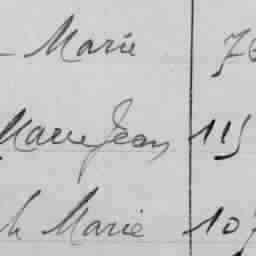 - Marie 76
Marie Jean 115
h Marie 107